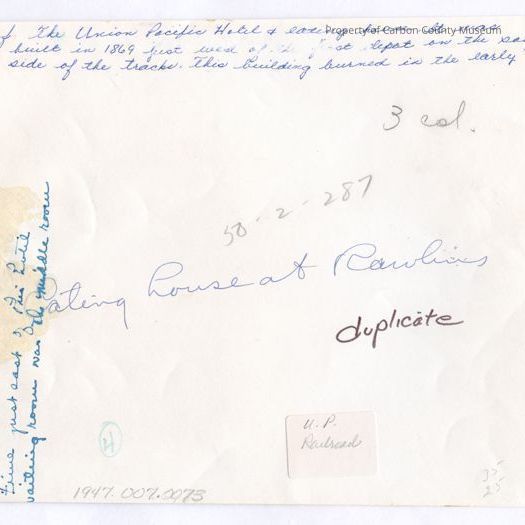 Property of Carbon County Museum
The Union Pacific Hotel & eating
built in 1869 just west of the depot on the
side of the tracks. This building burned in the early
3 col.
58-2-287
Eating house at Rawlins
duplicate
just east of this hotel
waiting room was the middle room
4
U.P.
Railroad
35
25
1947.007.0073